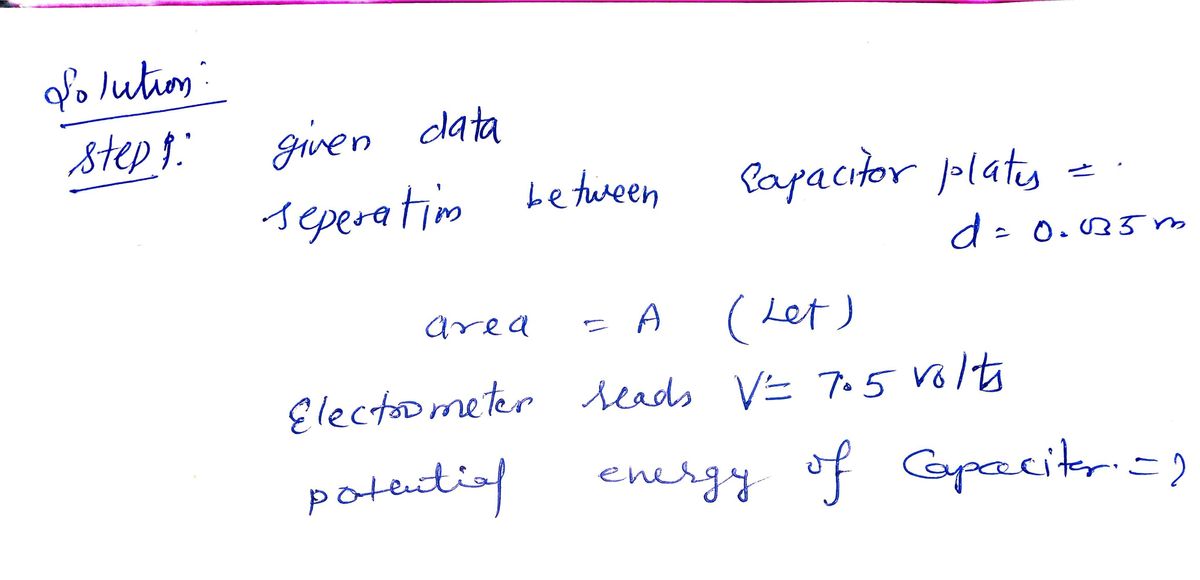 Solution:
Step 1: given data
seperation between Capacitor plates =
d = 0.035 m
area = A (Let)
Electrometer reads V = 7.5 volts
potential energy of Capacitor = ?